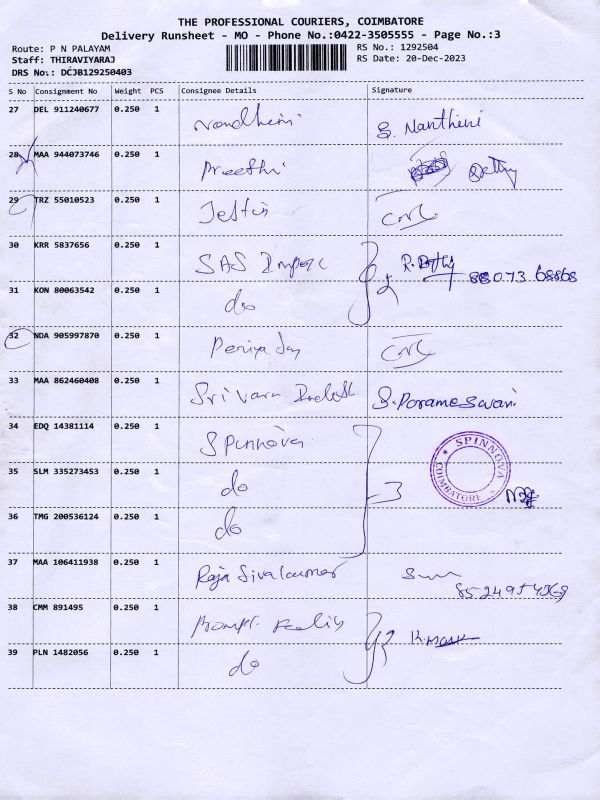 THE PROFESSIONAL COURIERS, COIMBATORE
Delivery Runsheet - MO - Phone No.:0422-3505555 - Page No.:3
Route: P N PALAYAM RS No.: 1292504
Staff: THIRAVIYARAJ RS Date: 20-Dec-2023
DRS No.: DCJB129250403
S No Consignment No Weight PCS Consignee Details Signature
27 DEL 911240677 0.250 1 Nandhini S. Nanthini
28 MAA 944073746 0.250 1 Preethi
29 TRZ 55010523 0.250 1 Jestin
30 KRR 5837656 0.250 1 SAS 88073 68868
31 KON 80063542 0.250 1 do
32 NDA 905997870 0.250 1
33 MAA 862460408 0.250 1 Sri Vara S. Parameswari
34 EDQ 14381114 0.250 1 Spinnova SPINNOVA COIMBATORE
35 SLM 335273453 0.250 1 do 3
36 TMG 200536124 0.250 1 do
37 MAA 106411938 0.250 1 Raja Sivakumar
38 CMM 891495 0.250 1
39 PLN 1482056 0.250 1 do